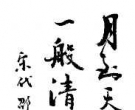 月到天
一般清
宋代邵